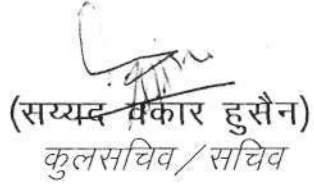 (सय्यद वकार हुसैन)
कुलसचिव/सचिव